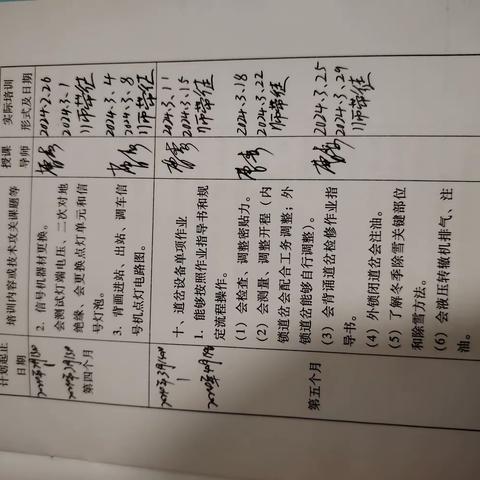 计划起止
日期
培训内容或技术攻关课题等
授课
导师
实际培训
形式及日期
第四个月
2. 信号机器材更换。
会测试灯端电压、二次对地
绝缘、会更换点灯单元和信
号灯泡。
3. 背画进站、出站、调车信
号机点灯电路图。
2024.2.26
2024.3.1
师带徒
2024.3.4
2024.3.8
师带徒
第五个月
十、道岔设备单项作业
1. 能够按照作业指导书和规
定流程操作。
(1) 会检查、调整密贴力。
(2) 会测量、调整开程（内
锁道岔会配合工务调整；外
锁道岔能够自行调整）。
(3) 会背诵道岔检修作业指
导书。
(4) 外锁闭道岔会注油。
(5) 了解冬季除雪关键部位
和除雪方法。
(6) 会液压转辙机排气、注
油。
2024.3.11
2024.3.15
师带徒
2024.3.18
2024.3.22
师带徒
2024.3.25
2024.3.29
师带徒